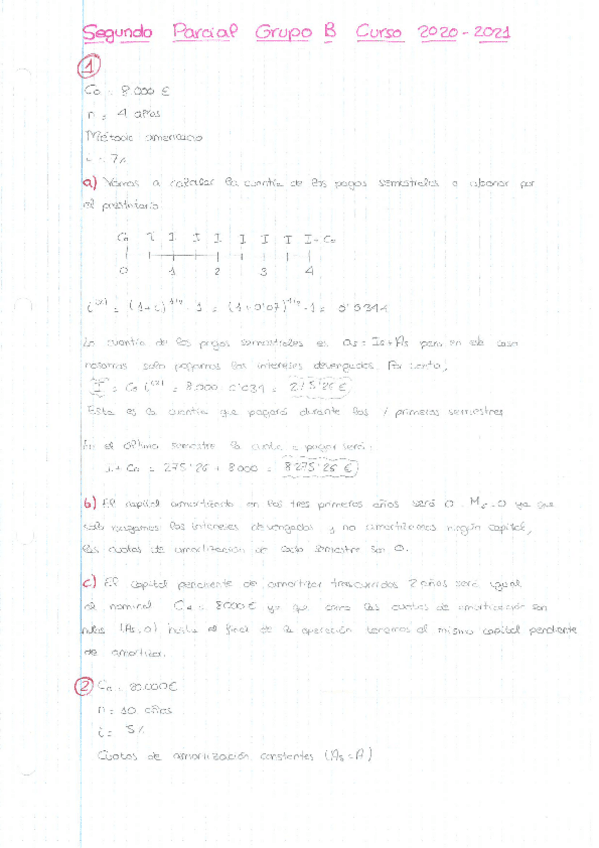 Segundo Parcial Grupo B Curso 2020-2021
1
Co = 8.000 €
n = 4 años
Método americano
i = 7%
a) Vamos a calcular la cuantía de los pagos semestrales a abonar por
el prestatario
Co I I I I I I I I+Co
0 1 2 3 4
i⁽²⁾ = (1+i)^1/2 - 1 = (1+0'07)^1/2 - 1 =
La cuantía de los pagos semestrales es as = Is + As pero en este caso
nosotros solo pagamos los intereses devengados. Por tanto,
I = Co i⁽²⁾ = 8.000 = 275'26 €
Esta es la cuantía que pagará durante los 7 primeros semestres
En el último semestre la cuota a pagar será:
I + Co = 275'26 + 8000 = 8275'26 €
b) El capital amortizado en los tres primeros años será 0. = 0 ya que
solo pagamos los intereses devengados y no amortizamos ningún capital,
las cuotas de amortización de cada semestre son 0.
c) El capital pendiente de amortizar transcurridos 2 años será igual
al nominal = 8000 € ya que como las cuotas de amortización son
nulas (As=0) hasta el final de la operación tenemos el mismo capital pendiente
de amortizar.
2 Co = €
n = 10 años
i = 5%
Cuotas de amortización constantes (As=A)